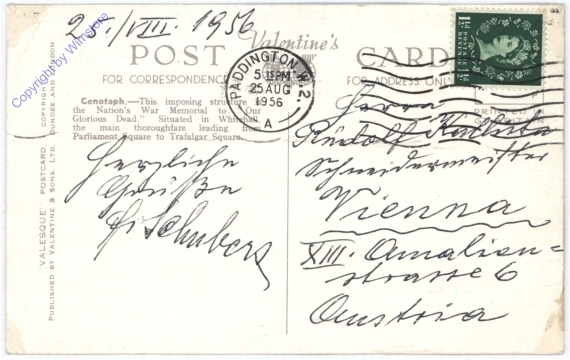 25./VIII. 1956
POST
Valentine's
CARD
FOR CORRESPONDENCE
FOR ADDRESS ONLY
PADDINGTON W.2.
5 15PM
25 AUG
1956
A
1½D POSTAGE REVENUE 1½D
Cenotaph.—This imposing structure is
the Nation's War Memorial to "Our
Glorious Dead." Situated in Whitehall,
the main thoroughfare leading from
Parliament Square to Trafalgar Square.
Herzliche
Grüße
Schubert
Herrn
Rudolf
Schneidermeister
Vienna
XIII. Amalien=
strasse 6
Austria
"VALESQUE" POSTCARD
PUBLISHED BY VALENTINE & SONS, LTD. DUNDEE AND LONDON
COPYRIGHT
PRINTED
Copyright by Wilnsdore